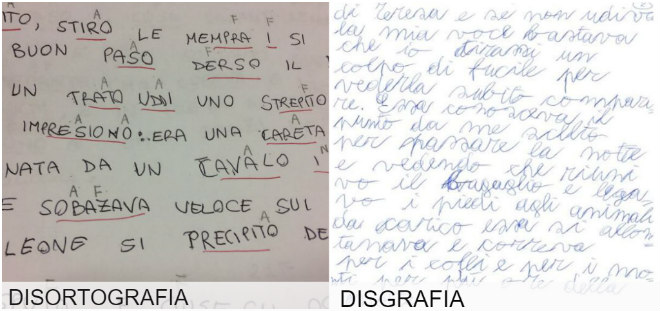 A F F
ITO, STIRO LE MEMPRA I SI
A F
BUON PASO DERSO IL
A A A
UN TRATO UDDI UNO STREPITO
A A A
IMPRESIONO:. ERA UNA CARETA
A
NATA DA UN CAVALO
A F
E SOBAZAVA VELOCE SUL
A
LEONE SI PRECIPITO DE
DISORTOGRAFIA
di Teresa e se non udiva
la mia voce bastava
che io tirassi un
colpo di fucile per
vederla subito compari
re. Essa conosceva il
punto da me scelto
per passare la notte
e vedendo che riuni
vo il bagaglio e lega
vo i piedi agli animali
da carico essa si allon
tanava e correva
per i colli e per i mo
ti per più ore della
DISGRAFIA